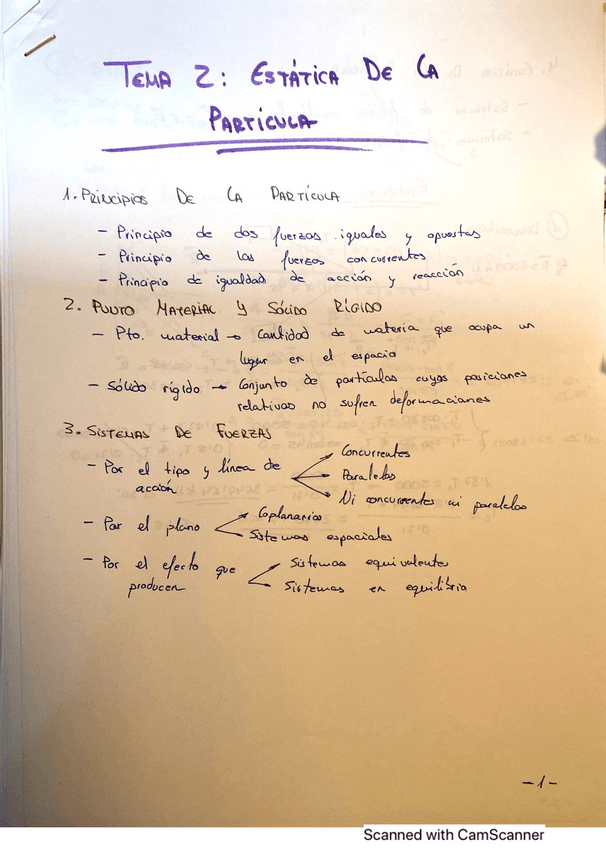 TEMA 2: ESTÁTICA DE LA
PARTÍCULA
1. PRINCIPIOS DE LA PARTÍCULA
- Principio de dos fuerzas iguales y opuestas
- Principio de las fuerzas concurrentes
- Principio de igualdad de acción y reacción
2. PUNTO MATERIAL Y SÓLIDO RÍGIDO
- Pto. material → Cantidad de materia que ocupa un
lugar en el espacio
- Sólido rígido → Conjunto de partículas cuyas posiciones
relativas no sufren deformaciones
3. SISTEMAS DE FUERZAS
- Por el tipo y línea de
acción
Concurrentes
Paralelas
Ni concurrentes ni paralelas
- Por el plano
Coplanarios
Sistemas espaciales
- Por el efecto que
producen
Sistemas equivalentes
Sistemas en equilibrio
-1-
Scanned with CamScanner